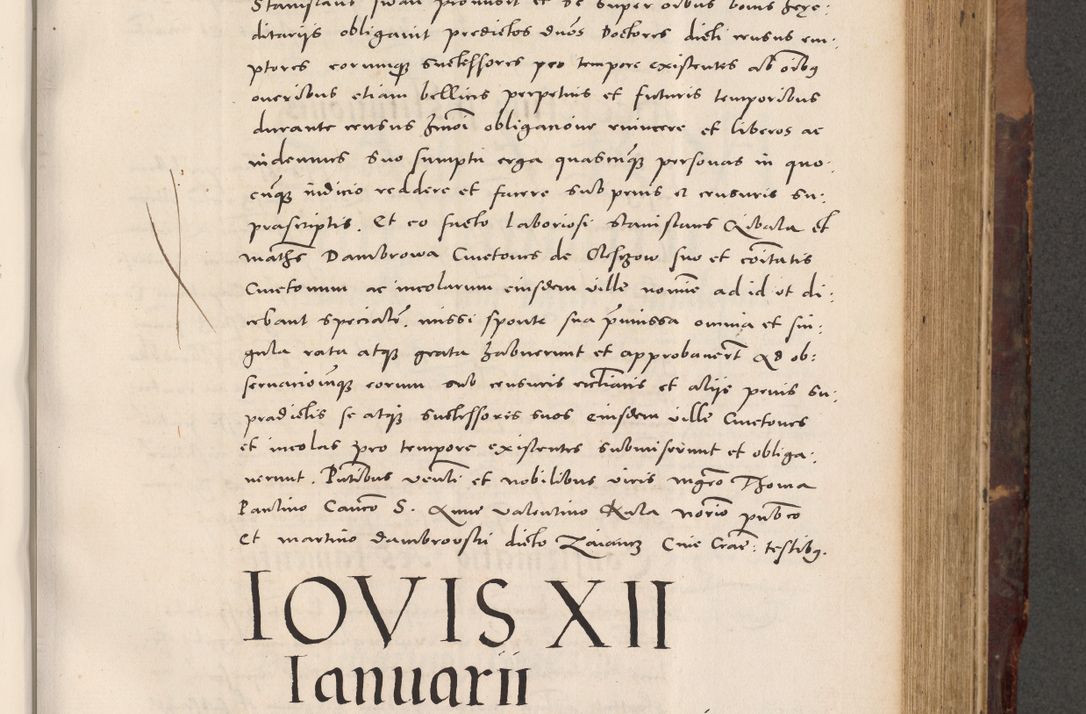 Stanislaus Iwan promisit et se super o͠ibus bonis here:
ditariis obligavit predictos duos Doctores dicti census em:
ptores eorumq͡ꝫ successores pro tempore existentes ab o͠ibꝫ
oneribus etiam bellicis perpetuis et futuris temporibus
durante census hm̄oi obligatione evincere et liberos ac
indemnes suo sumptu erga quascunqꝫ personas in quo:
cunqꝫ iudicio reddere et facere sub penis et censuris su:
prascriptis. Et eo facto laboriosi Stanislaus et
Maths̄ Dambrowa Cmetones de suo et co͠itatis
Cmetonum ac incolarum eiusdem ville no͠ie ad id ut di:
cebant specialr̄. missi sponte sua p̄missa omnia et sin:
gula rata atqꝫ grata habuerunt et approbaverūt ad ob:
servationemqꝫ eorum sub censuris ec̄cliasticis et aliis penis su:
pradictis se atqꝫ successores suos eiusdem ville Cmetones
et incolas pro tempore existentes submiserunt et obliga:
verunt. Pn̄tibus ven̄li et nobilibus viris mgr̄o Thoma
Paulino Can̄co S. Anne Valentino Rula no͠rio pub͠co
Et Martino Dambrovski dicto Zaiancz Cive Crac̄: testibꝫ.
IOVIS XII
Ianuarii